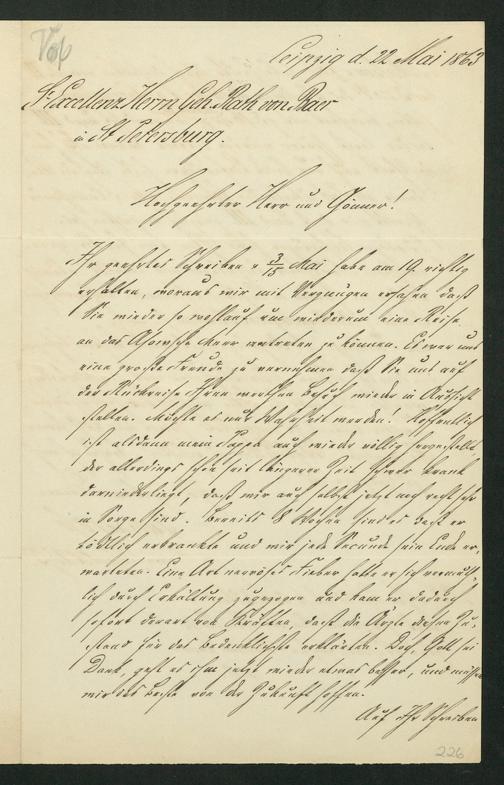 Voß
Leipzig d. 22 Mai 1863
Sr Excellenz Herrn Geh. Rath von Baer
in St Petersburg.
Hochgeehrter Herr und Gönner!
Ihr geehrtes Schreiben v 3/15 Mai habe am 19. richtig
erhalten, woraus wir mit Vergnügen ersahen daß
Sie wieder so wohlauf um wiederum eine Reise
an das Asowsche Meer antreten zu können. Es war uns
eine große Freude zu vernehmen daß Sie uns auf
der Rückreise Ihren werthen Besuch wieder in Aussicht
stellten. Möchte es nur Wahrheit werden! Hoffentlich
ist alsdann mein Papa auch wieder völlig hergestellt
der allerdings schon seit längerer Zeit schwer krank
darniederliegt, daß wir auch selbst jetzt noch recht sehr
in Sorge sind. Bereits 8 Wochen sind es daß er
tödtlich erkrankte und wir jede Secunde sein Ende er-
warteten. Eine Art nervöses Fieber hatte er sich vermuth-
lich durch Erkältung zugezogen und kam er dadurch
sofort derart von Kräften, daß die Ärzte diesen Zu-
stand für das Bedenklichste erklärten. Doch, Gott sei
Dank, geht es ihm jetzt wieder etwas besser, und müssen
wir das Beste von der Zukunft hoffen.
Auf Ihr Schreiben
226